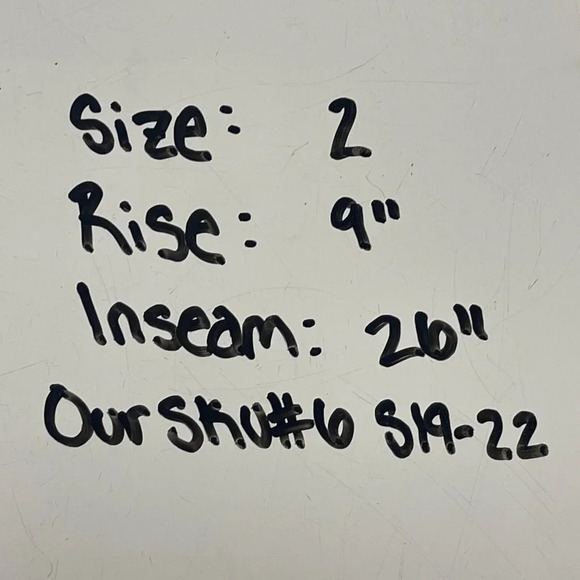 Size: 2
Rise: 9"
Inseam: 26"
Our SKU#6 S19-22